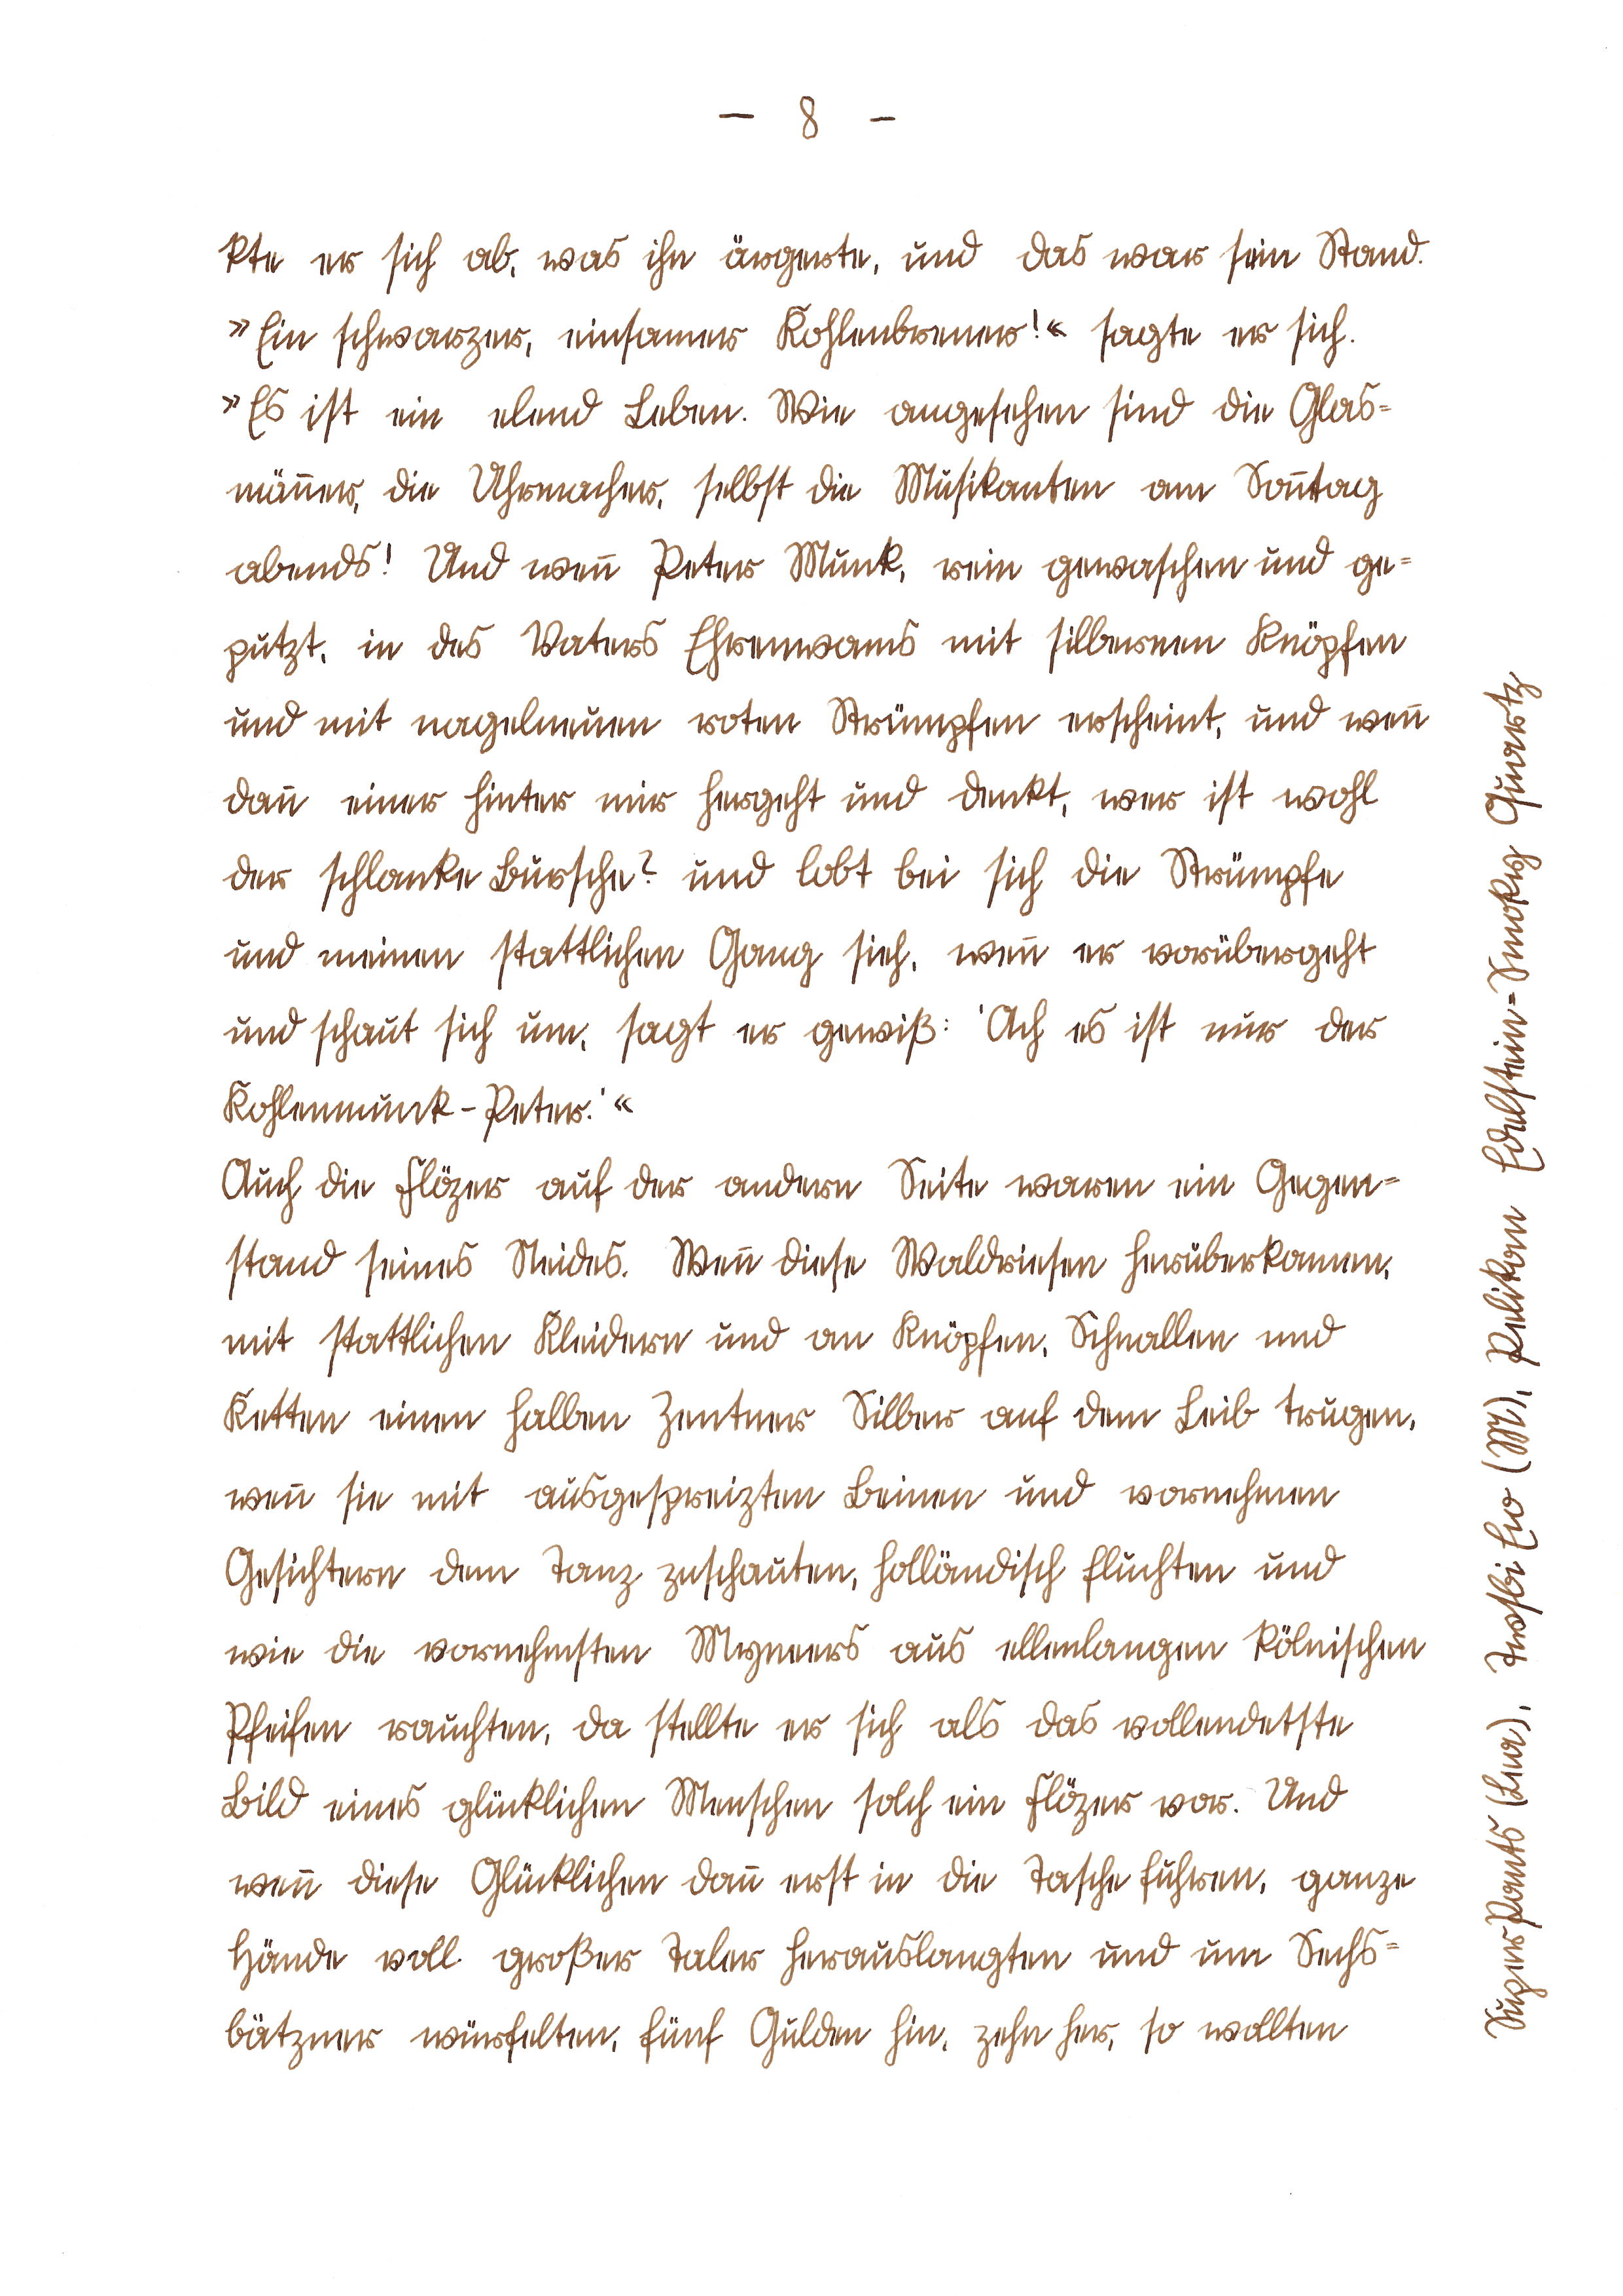 — 8 –
kte er sich ab, was ihn ärgerte, und das war sein Stand.
»Ein schwarzer, einsamer Kohlenbrener!« sagte er sich.
»Es ist ein elend Leben. Wie angesehen sind die Glas=
män̄er, die Uhrmacher, selbst die Musikanten am Son̄tag
abends! Und wen̄ Peter Munk, rein gewaschen und ge=
putzt, in des Vaters Ehrenwams mit silbernen Knöpfen
und mit nagelneuen roten Strümpfen erscheint, und wen̄
dan̄ einer hinter mir hergeht und denkt, wer ist wohl
der schlanke Bursche? und lobt bei sich die Strümpfe
und meinen stattlichen Gang sieh, wen̄ er vorübergeht
und schaut sich um, sagt er gewiß: 'Ach es ist nur der
Kohlenmunk-Peter.'«
Auch die Flözer auf der andern Seite waren ein Gegen=
stand seines Neides. Wen̄ diese Waldriesen herüberkamen,
mit stattlichen Kleidern und an Knöpfen, Schnallen und
Ketten einen halben Zentner Silber auf dem Leib trugen,
wen̄ sie mit ausgespreizten Beinen und vornehmen
Gesichtern dem Tanz zuschauten, holländisch fluchten und
wie die vornehmsten Myneers aus ellenlangen kölnischen
Pfeifen rauchten, da stellte er sich als das vollendetste
Bild eines glücklichen Menschen solch ein Flözer vor. Und
wen̄ diese Glücklichen dan̄ erst in die Tasche fuhren, ganze
Hände voll großer Taler herauslangten und um Sechs=
bätzner würfelten, fünf Gulden hin, zehn her, so wollten
Twsbi Eco (M), Pelikan Edelstein=Smoky Quartz